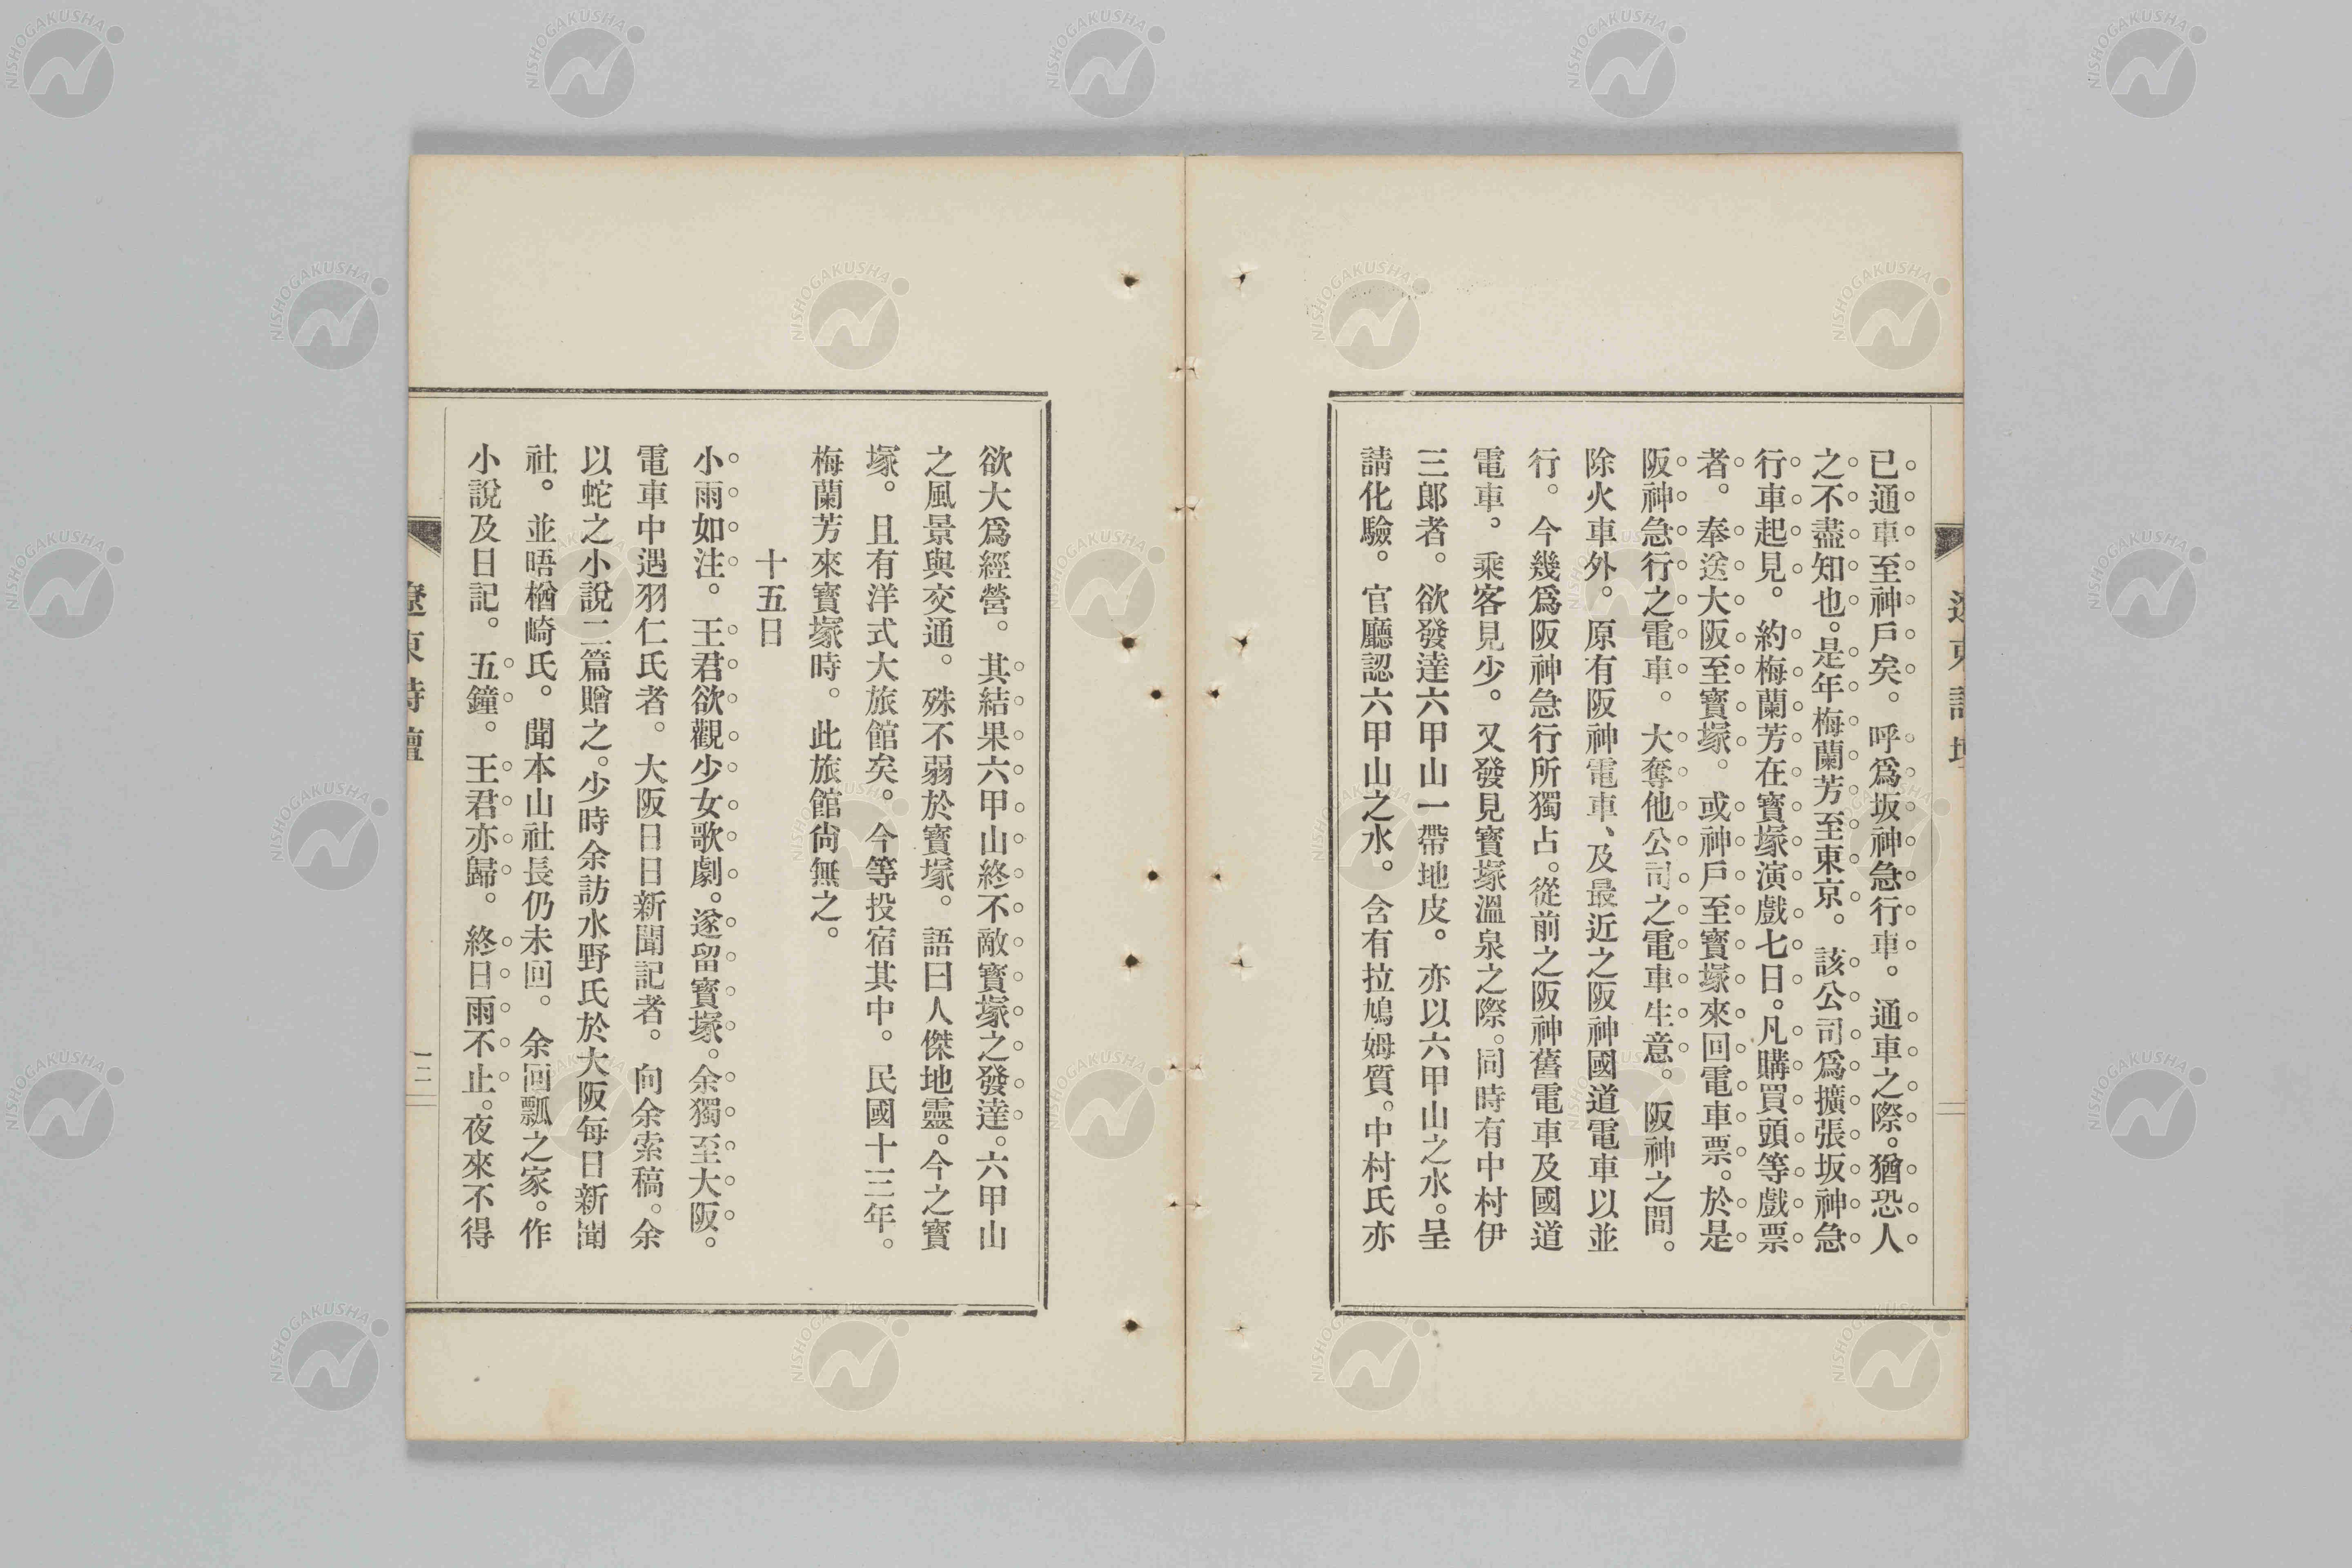 已通車至神戶矣。呼爲坂神急行車。通車之際。猶恐人
之不盡知也。是年梅蘭芳至東京。該公司爲擴張坂神急
行車起見。約梅蘭芳在寳塚演戲七日。凡購買頭等戲票
者。奉送大阪至寳塚。或神戶至寳塚來回電車票。於是
阪神急行之電車。大奪他公司之電車生意。阪神之間。
除火車外。原有阪神電車、及最近之阪神國道電車以並
行。今幾爲阪神急行所獨占。從前之阪神舊電車及國道
電車。乘客見少。又發見寳塚溫泉之際。同時有中村伊
三郞者。欲發達六甲山一帶地皮。亦以六甲山之水。呈
請化驗。官廳認六甲山之水。含有拉鳩姆質。中村氏亦
欲大爲經營。其結果六甲山終不敵寳塚之發達。六甲山
之風景與交通。殊不弱於寳塚。語曰人傑地靈。今之寳
塚。且有洋式大旅館矣。今等投宿其中。民國十三年。
梅蘭芳來寳塚時。此旅館尙無之。
十五日
小雨如注。王君欲觀少女歌劇。遂留寳塚。余獨至大阪。
電車中遇羽仁氏者。大阪日日新聞記者。向余索稿。余
以蛇之小說二篇贈之。少時余訪水野氏於大阪每日新聞
社。並晤楢崎氏。聞本山社長仍未回。余回瓢之家。作
小說及日記。五鐘。王君亦歸。終日雨不止。夜來不得
遼東詩壇
二二
NISHOGAKUSHA